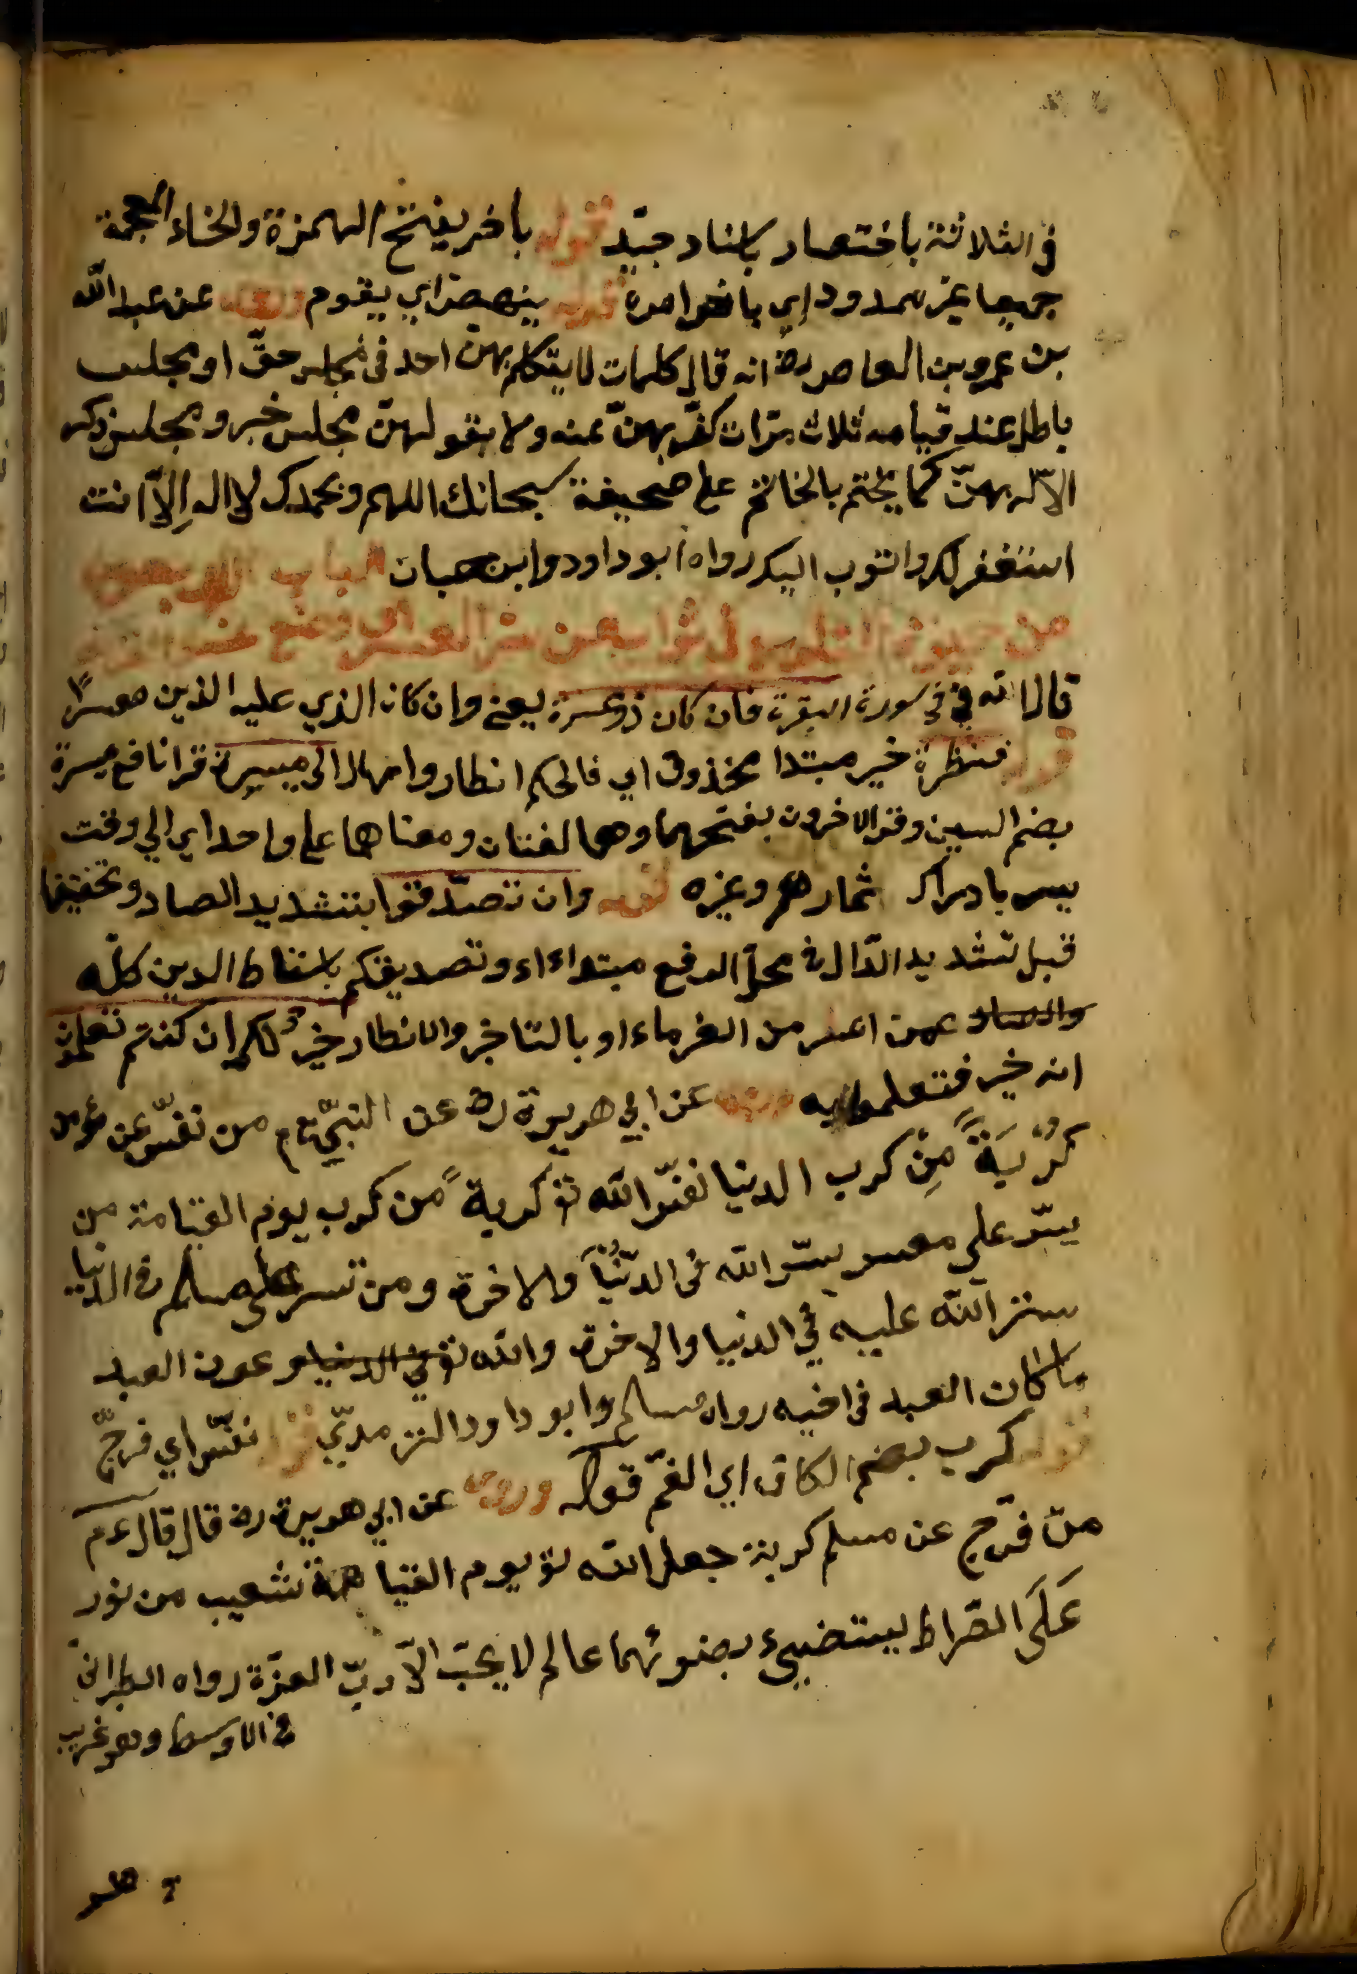 في الثلاثة باختصار باسناد جيّد قوله باخر بفتح الهمزة والخاء المعجمة
جميعا غير ممدود اي باخر امره قوله ينهض اي يقوم وروى عن عبد الله
بن عمرو بن العاص رضه انه قال كلمات لا يتكلم بهنّ احد في مجلس حقّ او مجلس
باطل عند قيامه ثلاث مرّات كفّر بهنّ عنه ولا يقولهنّ مجلس خير ومجلس ذكر
الا لله بهنّ كما يختم بالخاتم على صحيفة سبحانك اللهم وبحمدك لا اله الاّ انت
استغفرك واتوب اليك رواه ابو داود وابن حبان الباب
من في ثواب من
قال الله في سورة البقرة فان كان ذو عسرة يعني وان كان الذي عليه الدين معسرًا
قوله فنظرة خبر مبتدا محذوف اي فالحكم انظار وامهال الى ميسرة قرا نافع ميسرة
بضم السين وقرا الاخرون بفتحهما وهما لغتان ومعناهما على واحد اي الي وقت
يسر بادراك ثمارهم وغيره قوله وان تصدّقوا بتشديد الصاد وتخفيفها
قبل تشديد الدّال في محلّ الرفع مبتداء اء وتصديقكم باسقاط الدين كلّه
عمن اعسر من الغرماء او بالتاخير والانظار خيرٌ لكم ان كنتم تعلمون
انه خير فتعلموا به وروى عن ابي هريرة رضه عن النبيّ عم من نفّس عن مؤمن
كُرْبَةً مِنْ كرب الدنيا نفّس الله تع كربةً من كرب يوم القيامة من
يسّر على معسر يسّر الله في الدّنْيَا والاخرة ومن ستر على مسلم في الدنيا
ستر الله عليه في الدنيا والاخرة والله تع في عون العبد
ما كان العبد في اخيه رواه مسلم وابو داود والترمذيّ قوله نفّس اي فرّجّ
قوله كرب بضم الكاف اي الغمّ قوله وروى عن ابي هريرة رضه قال قال عم
منْ فرّج عن مسلم كربة جعل الله تع يوم القيامة شعبتين من نور
عَلَى الصّراط يستضيء بضوئهما عالم لا يحبّ الاّ ربّ العزّة رواه الطبرانيّ
في الاوسط وهو غريب